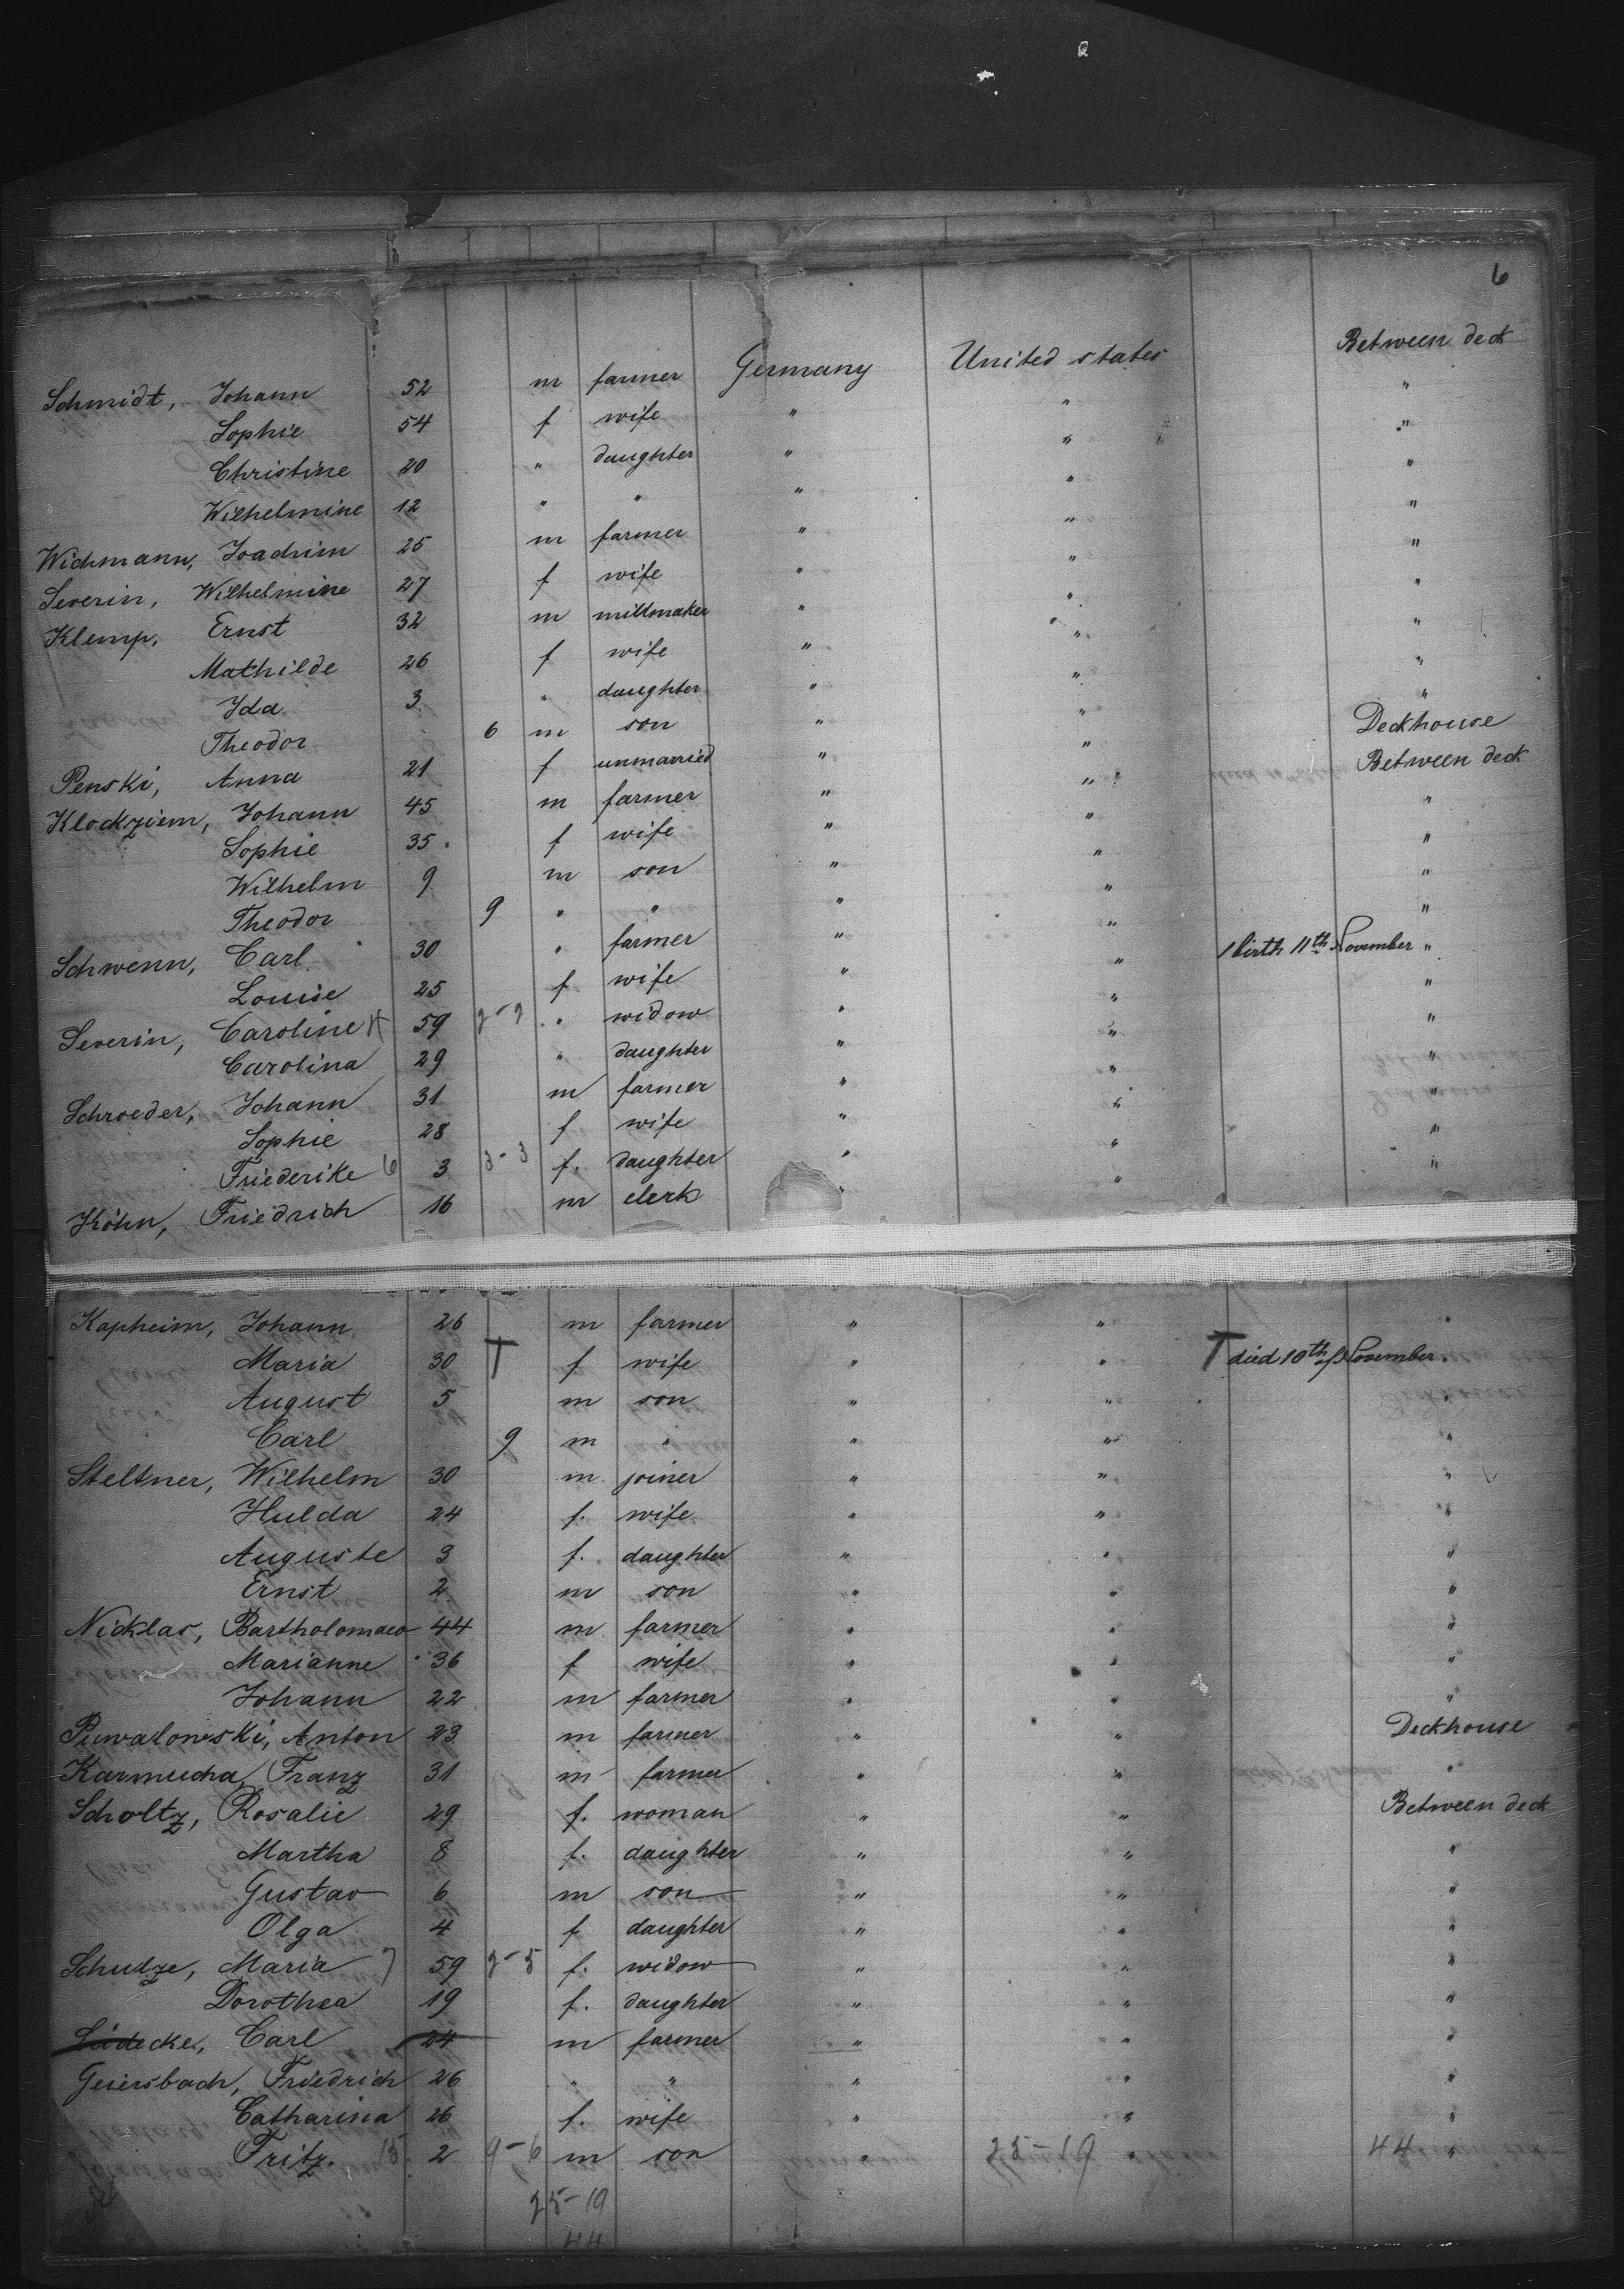 6
Schmidt, Johann 52 m farmer Germany United states Between deck
Sophie 54 f wife " " "
Christine 20 " daughter " " "
Wilhelmine 12 " " " " "
Widmann, Joachim 25 m farmer " " "
Severin, Wilhelmine 27 f wife " " "
Klemp, Ernst 32 m millmaker " " "
Mathilde 26 f wife " " "
Ida 3 " daughter " " "
Theodor 6 m son " " "
Penski, Anna 21 f unmarried " " Deckhouse
Klockziem, Johann 45 m farmer " " Between deck
Sophie 35 f wife " " "
Wilhelm 9 m son " " "
Theodor 9 " " " " "
Schwenn, Carl 30 " farmer " " "
Louise 25 f wife " " 1 birth 11th November "
Severin, Caroline 59 2-2 " widow " " "
Carolina 29 " daughter " " "
Schroeder, Johann 31 m farmer " " "
Sophie 28 f wife " " "
Friederike 6 3 3-3 f. daughter " " "
Köhn, Friedrich 16 m clerk " " "
Kapheim, Johann 26 m farmer " " "
Maria 30 T f wife " " T died 10th of November "
August 5 m son " "
Carl 9 m " " " "
Steltner, Wilhelm 30 m. joiner " " "
Hulda 24 f. wife " " "
Auguste 3 f. daughter " " "
Ernst 2 m son " " "
Nicklas, Bartholomaeo 44 m farmer " " "
Marianne 36 f wife " " "
Johann 22 m farmer " " "
Puwalowski, Anton 23 m farmer " " Deckhouse
Karmucha, Franz 31 m farmer " " "
Scholtz, Rosalie 29 f. woman " " Between deck
Martha 8 f. daughter " " "
Gustav 6 m son " " "
Olga 4 f daughter " " "
Schulze, Maria 7 59 2-5 f. widow " " "
Dorothea 19 f. daughter " " "
Lüdecke, Carl 24 m farmer " " "
Geiersbach, Friedrich 26 " " " " "
Catharina 26 f. wife " " "
Fritz. 15 2 9-6 m son " 25-19 " 44 "
25-19
44